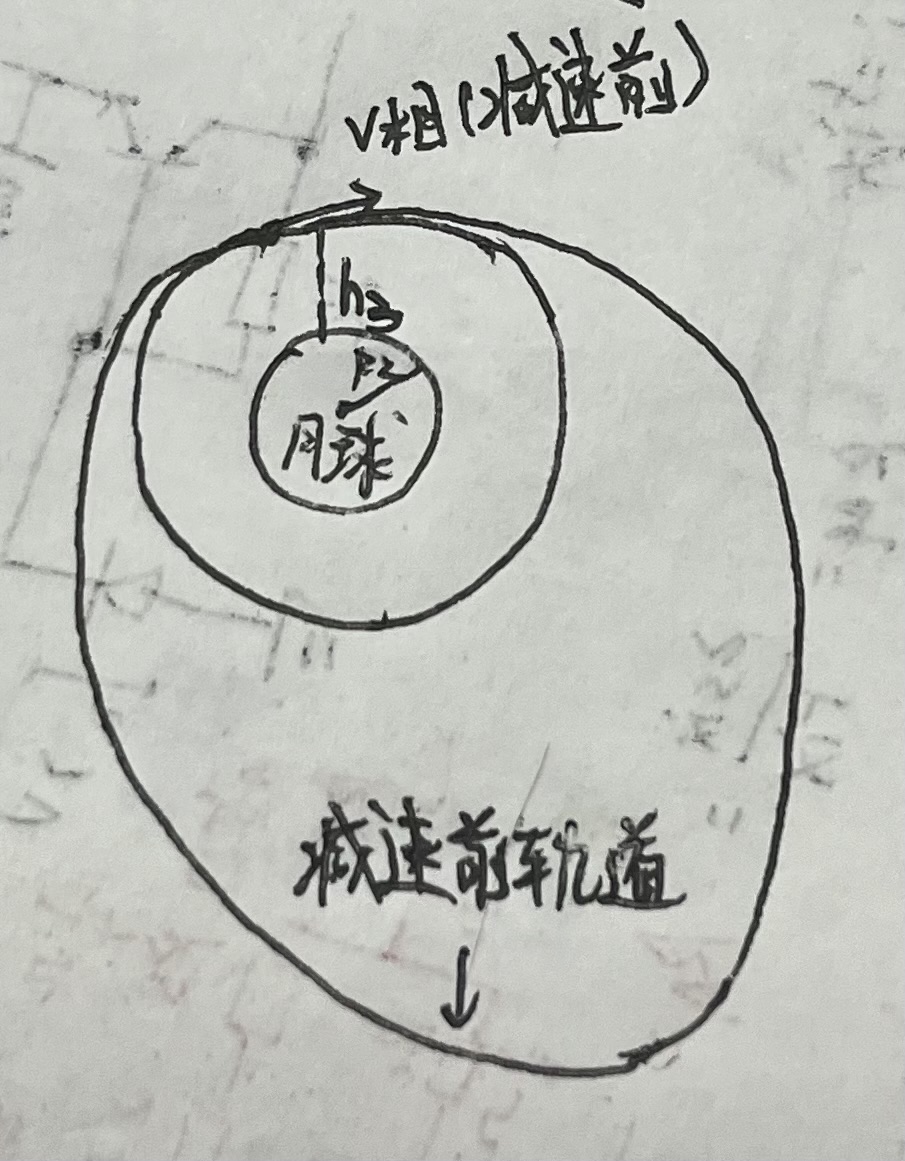 V相(减速前)
h3
月球
减速前轨道